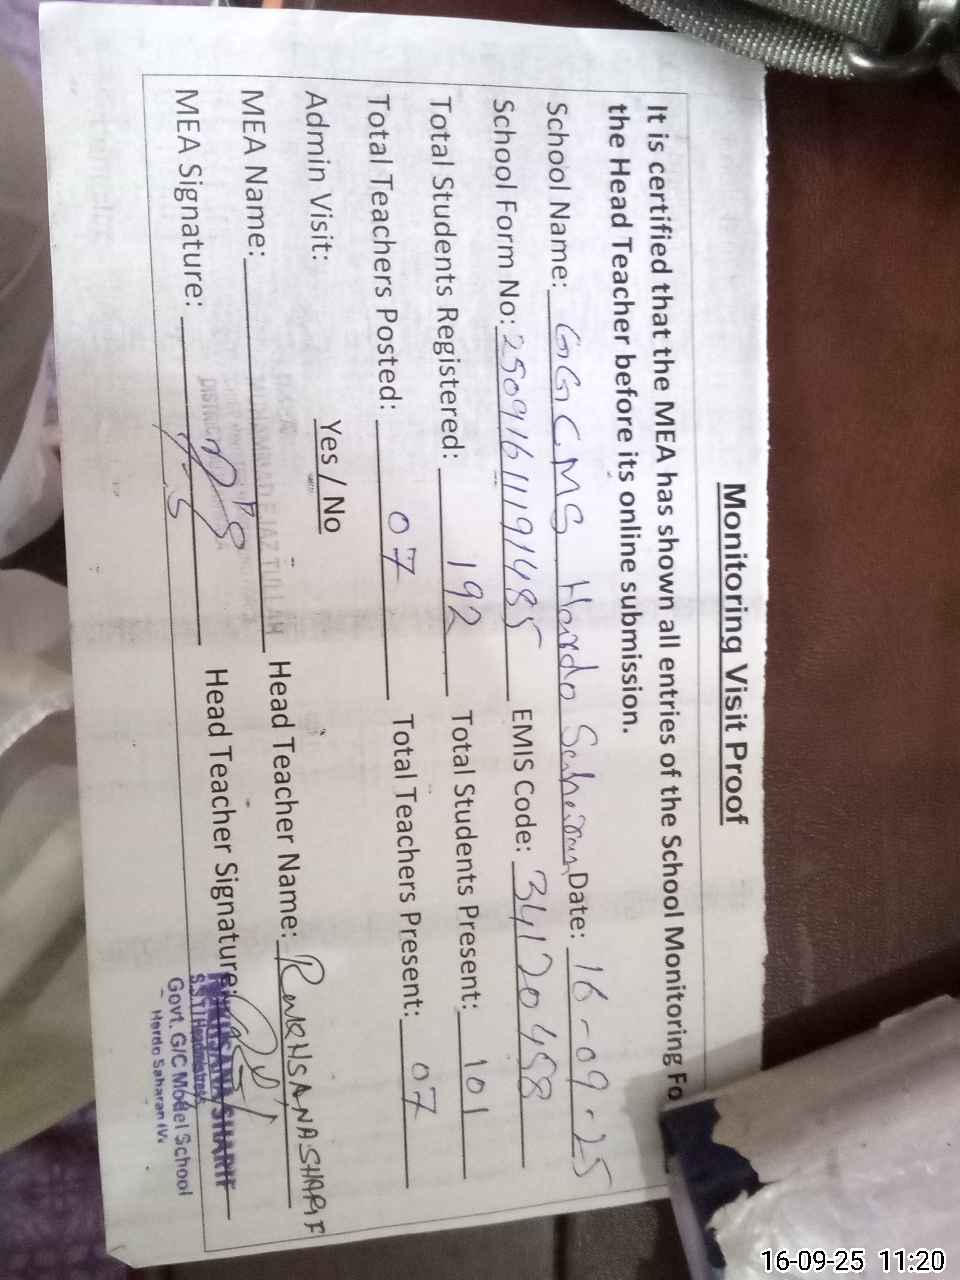 Monitoring Visit Proof
It is certified that the MEA has shown all entries of the School Monitoring Fo
the Head Teacher before its online submission.
School Name: GGCMS Hardo Saharan Date: 16-09-25
School Form No: 2509161191485 EMIS Code: 34120458
Total Students Registered: 192 Total Students Present: 101
Total Teachers Posted: 07 Total Teachers Present: 07
Admin Visit: Yes / No
MEA Name: Head Teacher Name: RUKHSANA SHARIF
MEA Signature: Head Teacher Signature:
RUKHSANA SHARIF
S.S.T/Headmistress
Govt. G/C Model School
Hardo Saharan
16-09-25 11:20